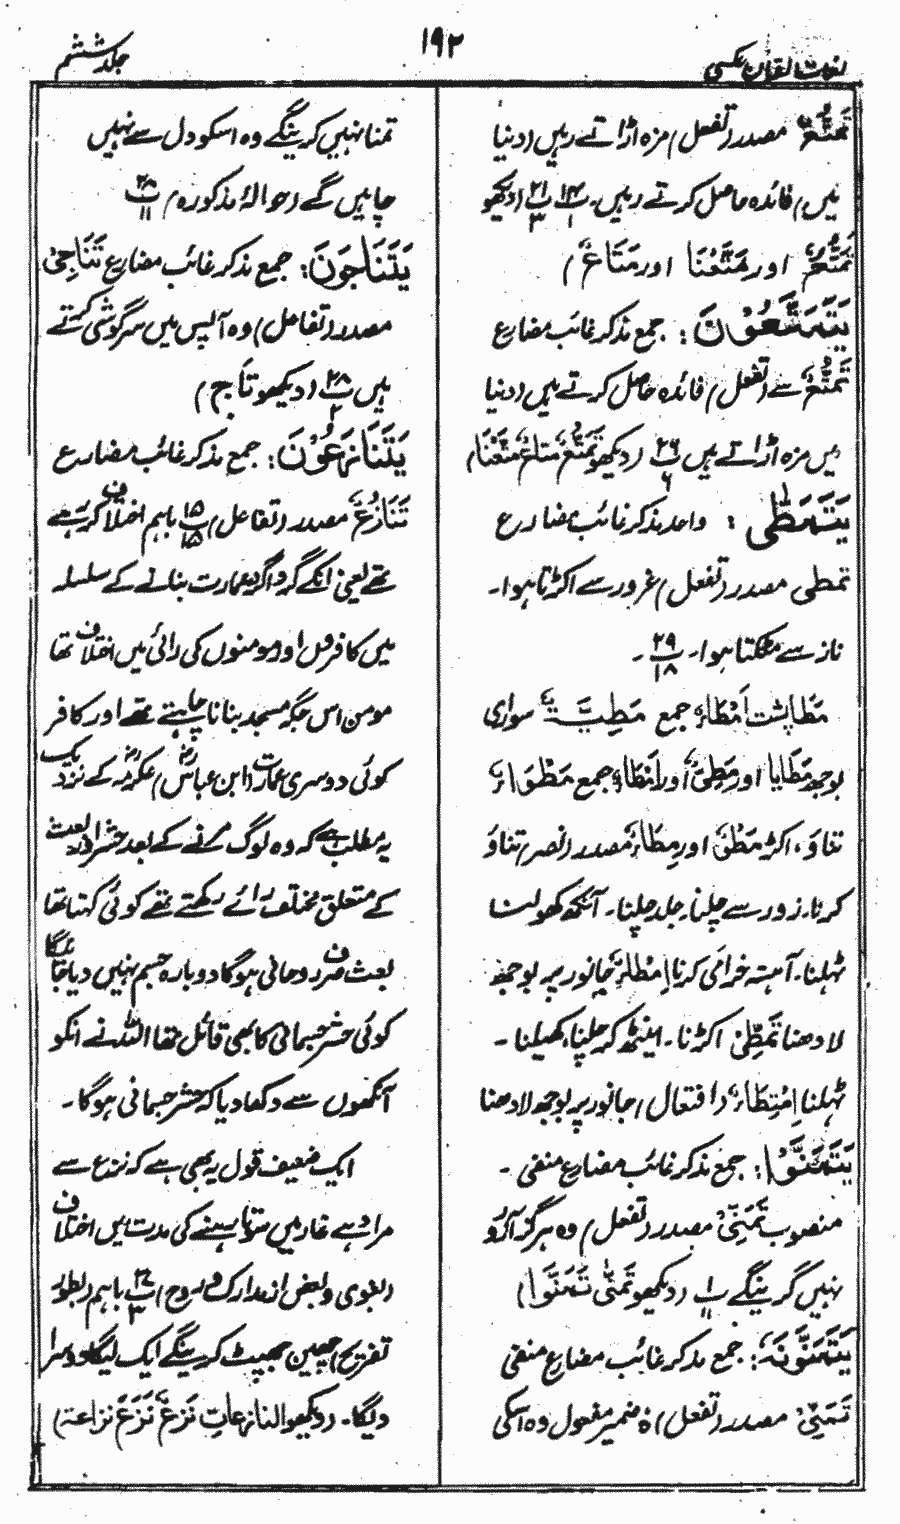 لغات القرآن عکسی
۱۹۲
جلد ششم
تَمَتُّعٌ مصدر (تفعل) مزہ اڑاتے رہیں (دنیا
میں) فائدہ حاصل کرتے رہیں۔ پ ۱۴ ۱ پ ۲۱ ۳ (دیکھو
تَمَتُّعٌ اور مَتَّعْنَا اور مَتَاعٌ)
یَتَمَتَّعُوْنَ: جمع مذکر غائب مضارع
تَمَتُّعٌ سے (تفعل) فائدہ حاصل کرتے ہیں (دنیا
میں مزہ اڑاتے ہیں پ ۲۶ ۶ (دیکھو تَمَتُّعٌ مَتَاعٌ مَتَّعْنَا)
یَتَمَطّٰی: واحد مذکر غائب مضارع
تمطی مصدر (تفعل) غرور سے اکڑتا ہوا۔
ناز سے مٹکتا ہوا۔ پ ۲۹ ۱۸۔
مَطَا پشت اَمْطَاءٌ جمع مَطِیَّۃٌ سواری
بوجھ مَطَایَا اور مَطِیٌّ اور اَمْطَاءٌ جمع
تناؤ، اکڑ مَطْوٌ اور مِطَاءٌ مصدر (نصر) تناؤ
کرنا۔ زور سے چلنا۔ جلد چلنا۔ آنکھ کھولنا
ٹہلنا۔ آہستہ خرامی کرنا جانور پر بوجھ
لادھنا تَمَطِّیْ اکڑنا۔ اینٹھ کر چلنا، کھیلنا۔
ٹہلنا اِمْتِطَاءٌ (افتعال) جانور پر بوجھ لادھنا
یَتَمَنَّوْا: جمع مذکر غائب مضارع منفی۔
منصوب تَمَنِّیْ مصدر (تفعل) وہ ہرگز آرزو
نہیں کریں گے پ ۱ ۱۱ (دیکھو تَمَنّٰی تَمَنَّوْا)
یَتَمَنَّوْنَہٗ: جمع مذکر غائب مضارع منفی
تَمَنِّیْ مصدر (تفعل) ہٗ ضمیر مفعول وہ اسکی
تمنا نہیں کرینگے وہ اسکو دل سے نہیں
چاہیں گے (حوالۂ مذکورہ) پ ۲۸ ۱۱
یَتَنَاجَوْنَ: جمع مذکر غائب مضارع تَنَاجِیْ
مصدر (تفاعل) وہ آپس میں سرگوشی کرتے
ہیں پ ۲۸ ۲ (دیکھو تَنَاجٍ)
یَتَنَازَعُوْنَ: جمع مذکر غائب مضارع
تَنَازُعٌ مصدر (تفاعل) پ ۱۵ ۱۵ باہم اختلاف کر رہے
تھے یعنی انکے گرداگرد عمارت بنانے کے سلسلہ
میں کافروں اور مومنوں کی رائی میں اختلاف تھا
مومن اس جگہ مسجد بنانا چاہتے تھے اور کافر
کوئی دوسری عمارت (ابن عباس) عکرمہ کے نزدیک
یہ مطلب ہے کہ وہ لوگ مرنے کے بعد حشر اور بعث
کے متعلق مختلف رائے رکھتے تھے کوئی کہتا تھا
بعث صرف روحانی ہوگا دوبارہ جسم نہیں دیا جائیگا
کوئی حشر جسمانی کا بھی قائل تھا اللہ نے انکو
آنکھوں سے دکھا دیا کہ حشر جسمانی ہوگا۔
ایک ضعیف قول یہ بھی ہے کہ نزع سے
مراد ہے غار میں سوتا رہنے کی مدت میں اختلاف
(بغوی و بعض از مدارک و روح) پ ۲۷ ۳ باہم (بطور
تفریح) چھین جھپٹ کرینگے ایک لیگا دوسرا
دیگا۔ (دیکھو النازعات نَزَعَ نَزْعٌ نزاعۃ)